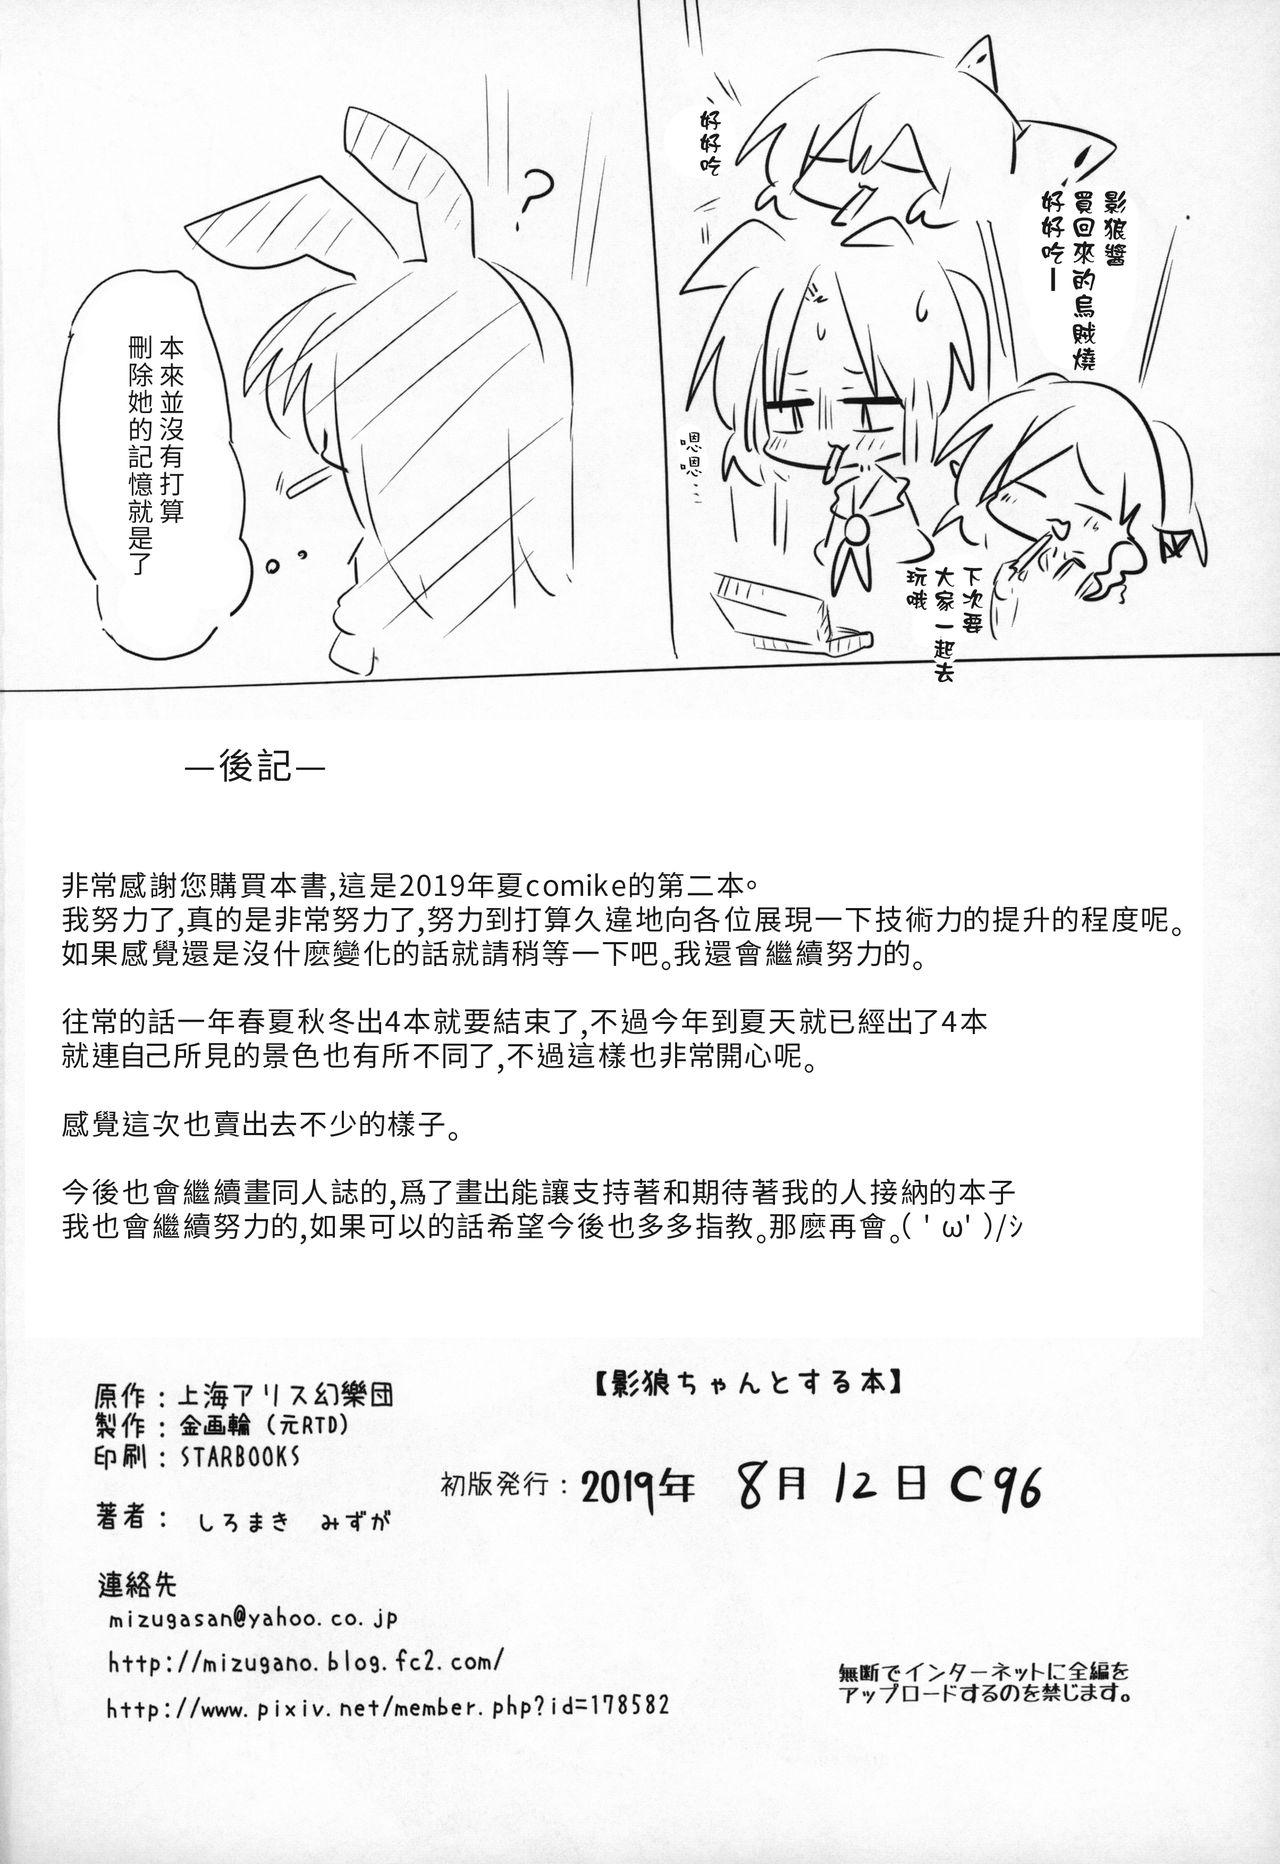 影狼醬
買回來的烏賊燒
好好吃ー
好好吃
嗯嗯…
下次要
大家一起去
玩哦
?
本來並沒有打算
刪除她的記憶就是了
—後記—
非常感謝您購買本書,這是2019年夏comike的第二本。
我努力了,真的是非常努力了,努力到打算久違地向各位展現一下技術力的提升的程度呢。
如果感覺還是沒什麼變化的話就請稍等一下吧。我還會繼續努力的。
往常的話一年春夏秋冬出4本就要結束了,不過今年到夏天就已經出了4本
就連自己所見的景色也有所不同了,不過這樣也非常開心呢。
感覺這次也賣出去不少的樣子。
今後也會繼續畫同人誌的,爲了畫出能讓支持著和期待著我的人接納的本子
我也會繼續努力的,如果可以的話希望今後也多多指教。那麼再會。( ' ω' )/ｼ
【影狼ちゃんとする本】
原作：上海アリス幻樂団
製作：金画輪（元RTD）
印刷：STARBOOKS
初版発行：2019年 8月12日 C96
著者： しろまき みずが
連絡先
mizugasan@yahoo.co.jp
http://mizugano.blog.fc2.com/
http://www.pixiv.net/member.php?id=178582
無断でインターネットに全編を
アップロードするのを禁じます。